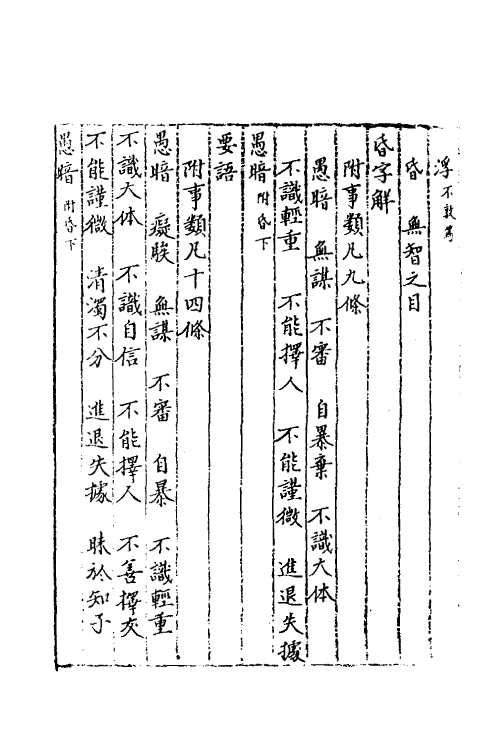 浮 不敦篤
昏 無智之目
昏字解
附事類凡九條
愚暗 無謀 不審 自暴棄 不識大体
不識輕重 不能擇人 不能謹微 進退失據
愚暗 附昏下
要語
附事類凡十四條
愚暗 癡騃 無謀 不審 自暴 不識輕重
不識大体 不識自信 不能擇人 不善擇交
不能謹微 清濁不分 進退失據 昧於知子
愚暗 附昏下